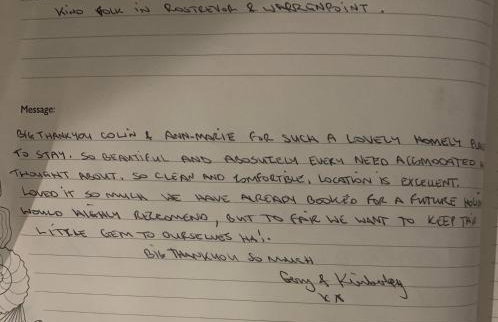 KIND FOLK IN ROSTREVOR & WARRENPOINT.
Message:
BIG THANKYOU COLIN & ANN-MARIE FOR SUCH A LOVELY HOMELY
TO STAY. SO BEAUTIFUL AND ABSOUTELY EVERY NEED ACCOMODATED
THOUGHT ABOUT. SO CLEAN AND COMFORTIBLE, LOCATION IS EXCELLENT.
LOVED IT SO MUCH WE HAVE ALREADY BOOKED FOR A FUTURE
WOULD HIGHLY RECCOMEND, BUT TO FAIR WE WANT TO KEEP
LITTLE GEM TO OURSELVES HA!.
BIG THANKYOU SO MUCH
& Kimberley
x x